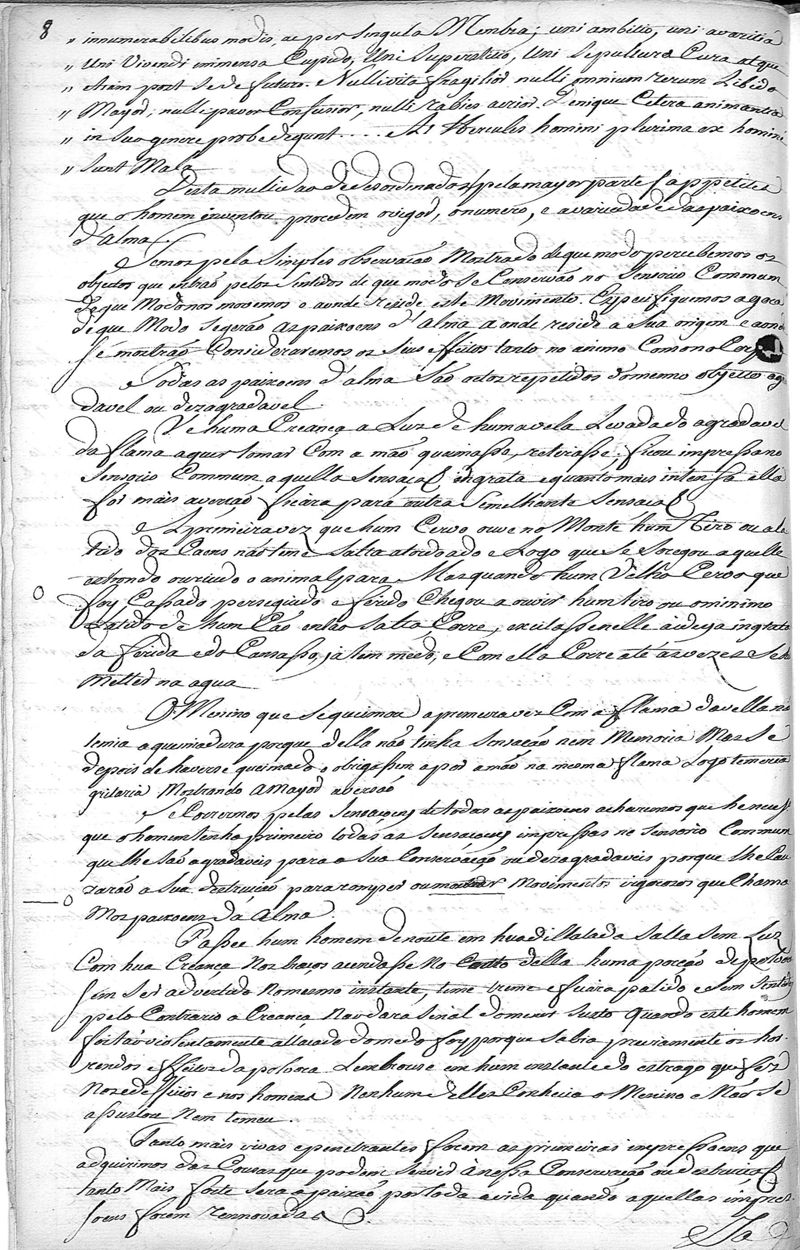 8
„ innumerabilibus modis, ac per singula Membra; uni ambitio, uni avaritiâ
„ Uni Vivendi inmensa Cupido, Uni Superstitio, Uni Sepultura Cura atque
„ etiam post se de futuro. Nulli vita fragilior nulli omnium rerum Libido
„ Mayor; nulli pavor Confusior, nulli rabies acrior. Denique Cetera animantia
„ in suo genere probe degunt .... At Hercules homini plurima ex homini
„ sunt Mala
Desta multidao de desordinados (pela mayor parte) appetites
que o homem inventou procedem origod, o numero, e a variedade das paixoens
d'alma.
Temos pela Simples observaçaõ Mostrado de que modo percebemos os
objectos que entraõ pelos Sentidos de que modo se Conservaõ no Sensorio Commum
de que Modo nos movemos e aonde reside este Movimento. Especifiquemos agora
de que Modo se geraõ as paixoens d'alma aonde reside a Sua origem e
se mostraõ Consideraremos os Seus effeitos tanto no animo Como no Corpo
Todas as paixoens d'alma Saõ actos repetidos do mesmo objecto agra
davel ou dezagradavel.
Ve huma Creança a Luz de huma vela Levada do agradavel
da flama a quer tomar Com a maõ queimasse, retirasse, ficou impressa no
Sensorio Commum, aquella Sensaçaõ ingrata e quanto mais intensa ella
foi mais aversaõ ficará para outra Semelhante Sensaçaõ
A primeira vez que hum Cervo ouve no Monte hum Tiro ou a la
tido dos Caens naõ teme Salta atordoado e Logo que se Socegou aquelle
estrondo ou ruido o animal para Mas quando hum Velho Cervo que
foy Cassado perseguido e ferido Chegou a ouvir hum tiro ou o minimo
Latido de hum Caõ entaõ Salta Corre, excitasse nelle a ideja ingrata
da ferida e do Cansasso, ja tem medo, e Com ella Corre até as vezes se
metter na agua
O Menino que se queimou a primeira vez Com a flama da vella naõ
temia a queimadura porque della naõ tinha Sensaçaõ nem Memoria Mas se
depois de haverse queimado o obrigassem a por a maõ na mesma flama Logo temeria
gritaria Mostrando a Mayor aversaõ
Se Corrermos pelas Sensaçoens de todas as paixoens acharemos que he neces
que o homem tenha primeiro todas as Sensaçoens impressas no Sensorio Commum
que lhe saõ agradaveis para a Sua Conservaçaõ ou dezagradaveis porque lhe Cau
saraõ a Sua destruiçaõ para romper ou Movimentos vigorosos que Chama
Mos paixoens da Alma.
Passee hum homem de noute em hua dillatada Salla Sem Luz
Com hua Creança nos braços acendasse no Canto della huma porçaõ de polvora
sem Ser advertido no mesmo instante, teme treme e ficara palido e sem Sentidos
pelo Contrario a Creança Naõ dara Sinal do menor Susto Quando este homem
foi taõ violentamente atacado do medo foy porque Sabia previamente os hor
rendos effeitos da polvora Lembrouse em hum instante do estrago que fez
Nos edefficios e nos homens Nenhum delles Conhecia o Menino e Naõ Se
assustou Nem temeu.
Tanto mais vivas e penetrantes forem as primeiras impressoens que
adquirimos das Cousas que podem Servir à nossa Conservaçaõ ou destruiçaõ
tanto Mais forte sera a paixaõ por toda a vida quando aquellas impres
soens forem rennovadas.